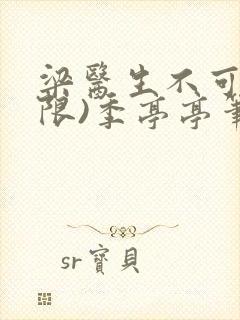 梁醫生不可
限)季亭亭筆
sr寶貝